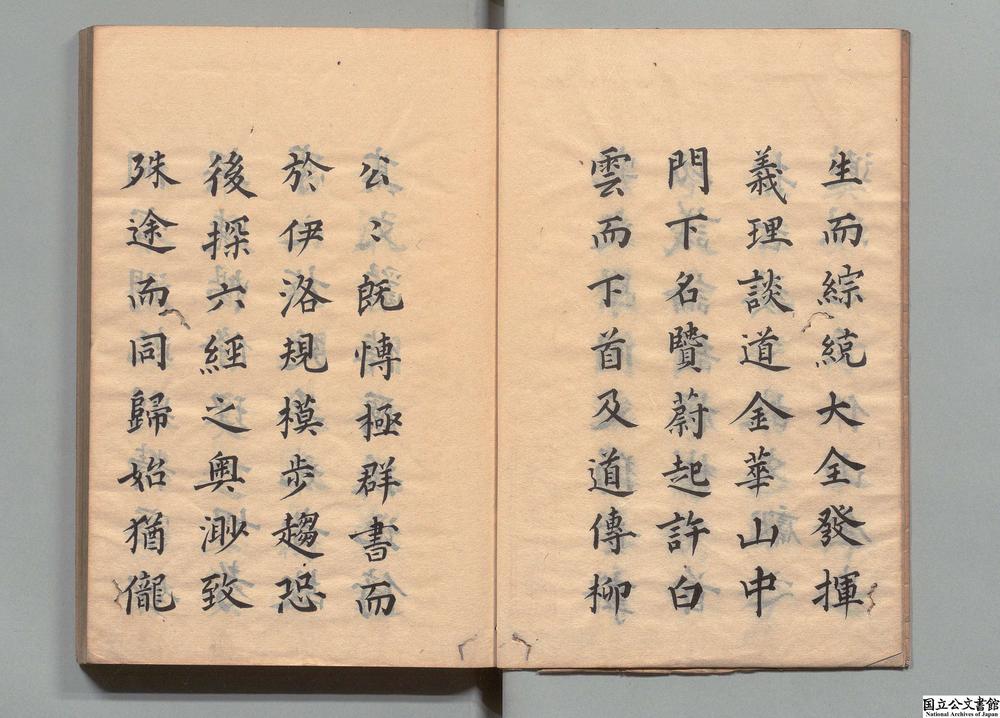 生而綜統大全發揮
義理談道金華山中
門下名賢蔚起許白
雲而下首及道傳柳
公〻既博極群書而
於伊洛規模步趨恐
後探六經之奥渺致
殊途而同歸始猶儱
国立公文書館
National Archives of Japan